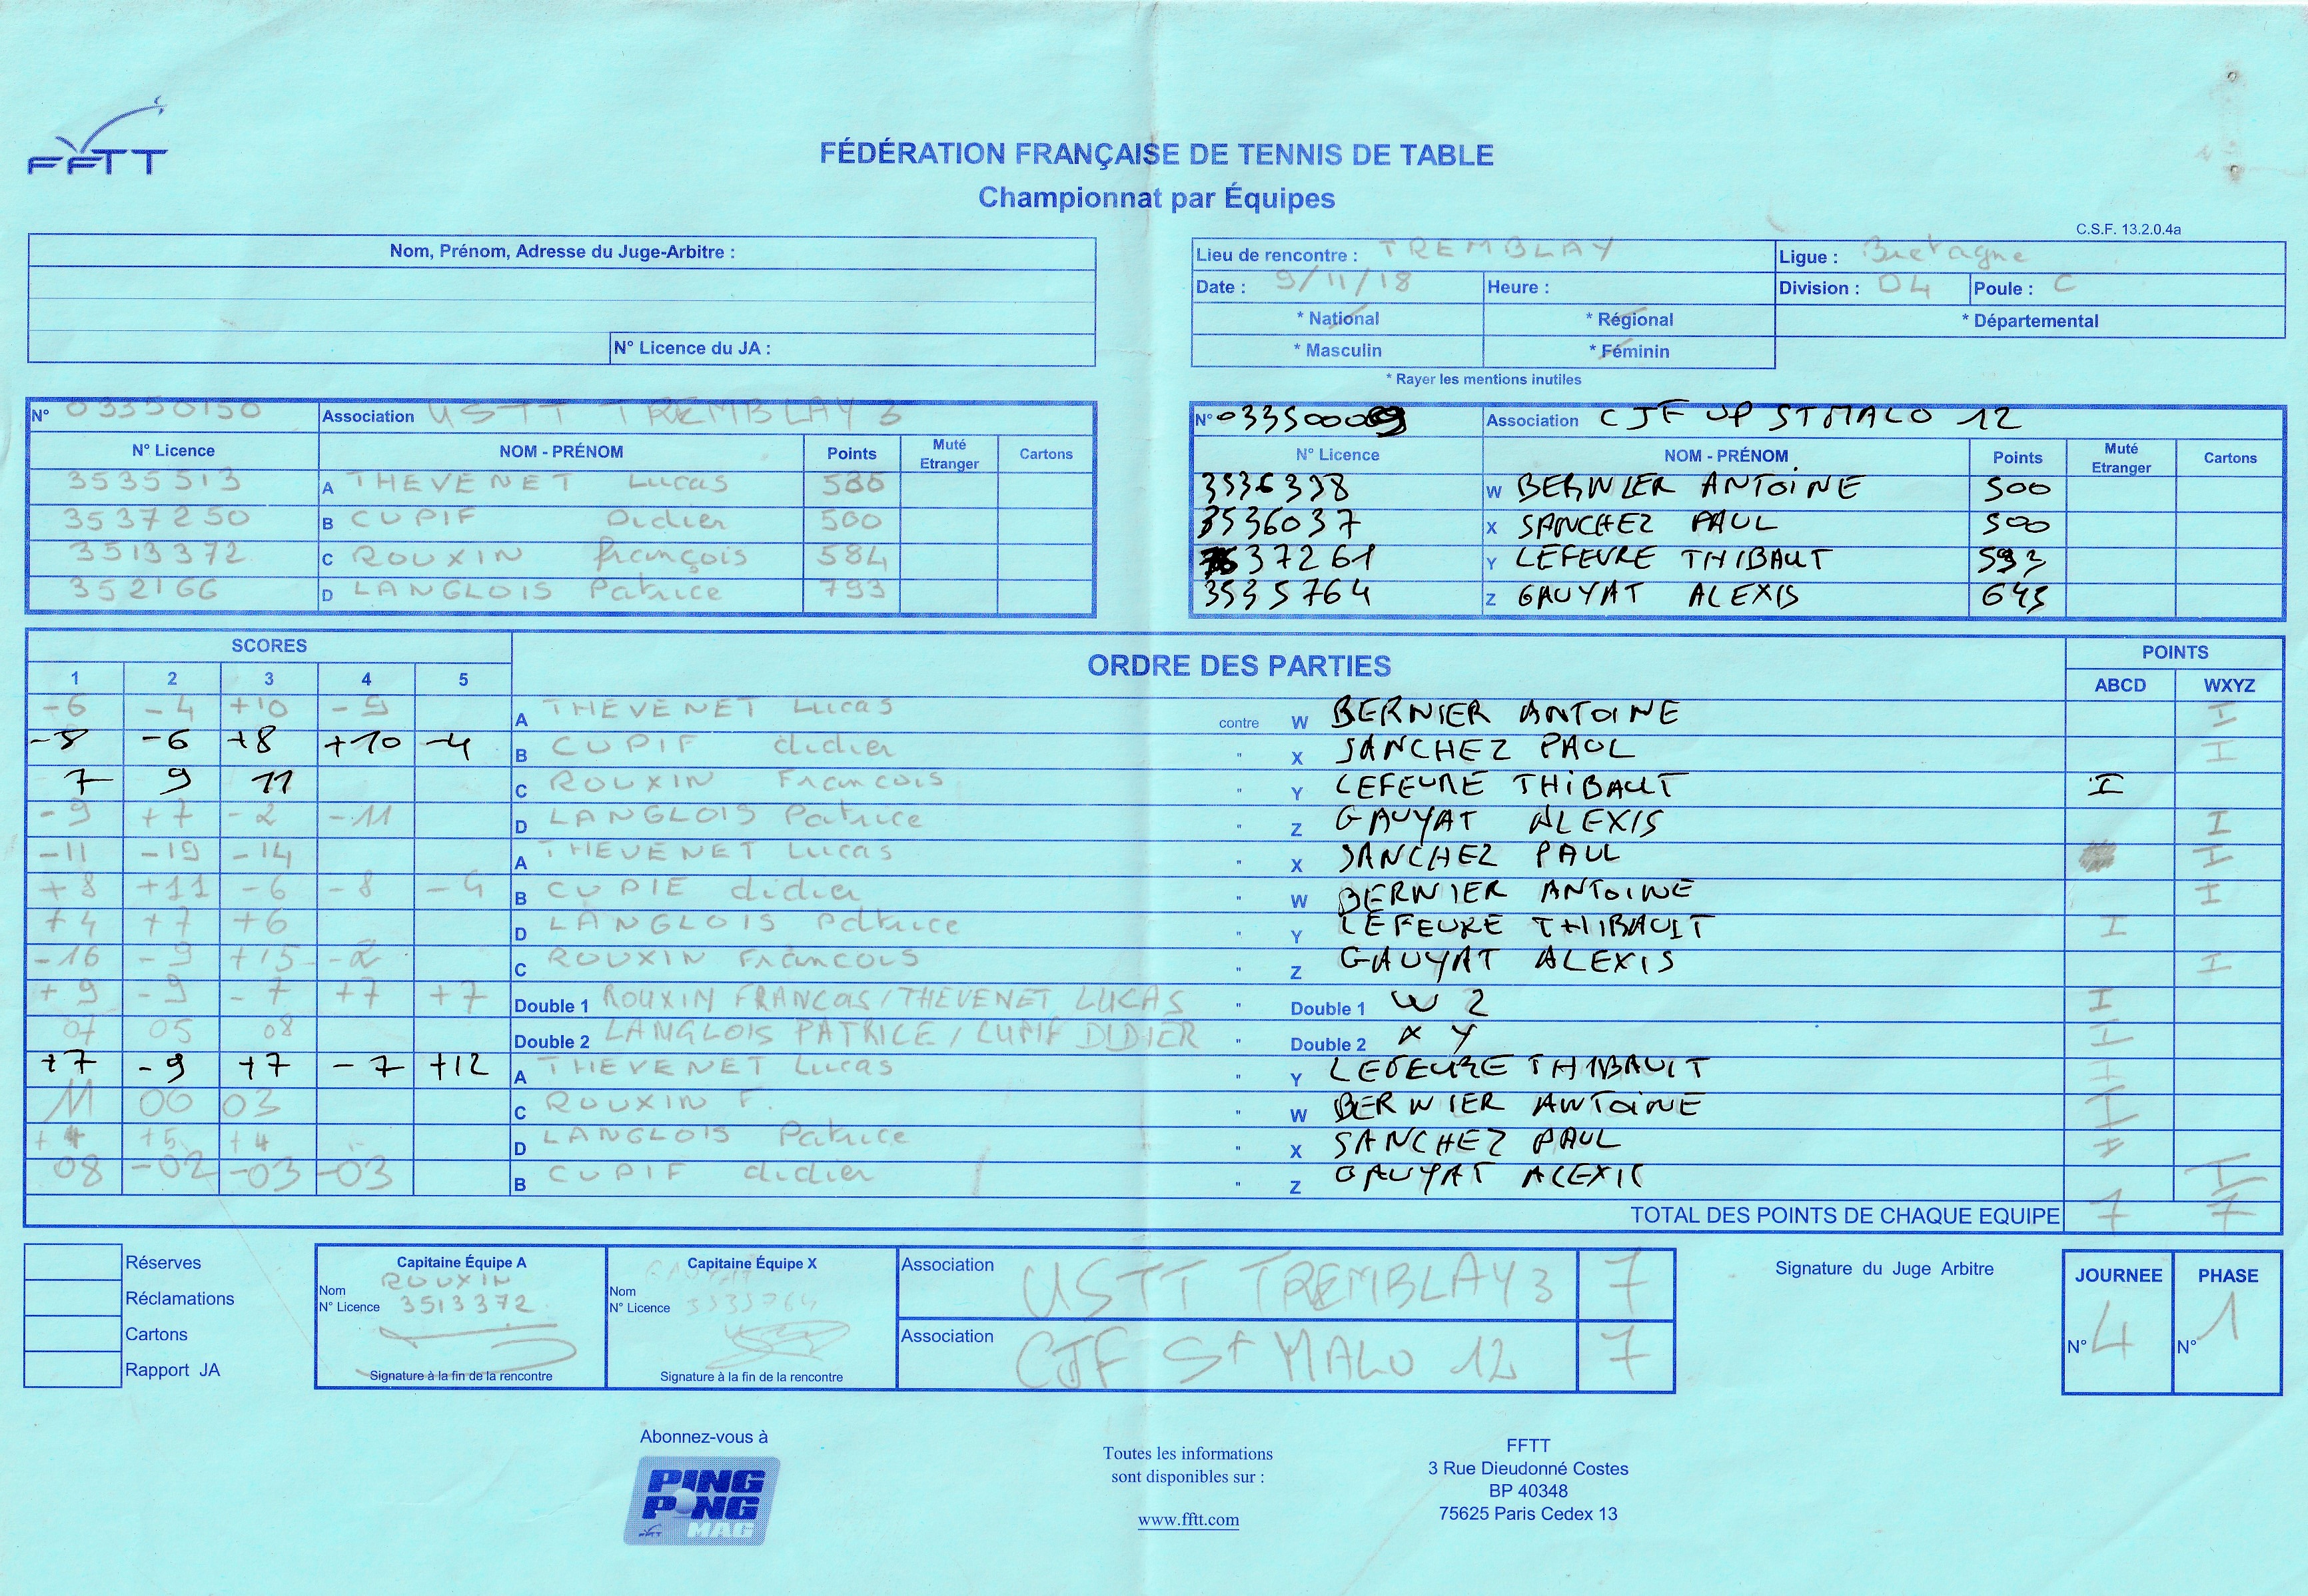 FFTT
FÉDÉRATION FRANÇAISE DE TENNIS DE TABLE
Championnat par Équipes
C.S.F. 13.2.0.4a
Nom, Prénom, Adresse du Juge-Arbitre :
N° Licence du JA :
Lieu de rencontre : TREMBLAY Ligue : Bretagne
Date : 9/11/18 Heure : Division : D4 Poule : C
* National * Régional * Départemental
* Masculin * Féminin
* Rayer les mentions inutiles
N° 03350150 Association USTT TREMBLAY 3
N° Licence NOM - PRÉNOM Points Muté Etranger Cartons
3535513 A THEVENET Lucas 586
3537250 B CUPIF Didier 500
3513372 C ROUXIN françois 584
352166 D LANGLOIS Patrice 793
N° 03350009 Association CJF UP ST MALO 12
N° Licence NOM - PRÉNOM Points Muté Etranger Cartons
3536398 W BERNIER ANTOINE 500
3536037 X SANCHEZ PAUL 500
37261 Y LEFEVRE THIBAUT 593
3535764 Z GAUYAT ALEXIS 645
SCORES ORDRE DES PARTIES POINTS
1 2 3 4 5 ABCD WXYZ
-6 -4 +10 -9 A THEVENET Lucas contre W BERNIER ANTOINE I
-8 -6 +8 +10 -4 B CUPIF didier " X SANCHEZ PAUL I
7 9 11 C ROUXIN Francois " Y LEFEURE THIBAULT I
-9 +7 -2 -11 D LANGLOIS Patrice " Z GAUYAT ALEXIS I
-11 -19 -14 A THEVENET Lucas " X SANCHEZ PAUL I
+8 +11 -6 -8 -9 B CUPIE didier " W BERNIER ANTOINE I
+4 +7 +6 D LANGLOIS Patrice " Y LEFEURE THIBAULT I
-16 -9 +15 -2 C ROUXIN Francois " Z GAUYAT ALEXIS I
+9 -9 -7 +7 +7 Double 1 ROUXIN FRANCOIS/THEVENET LUCAS " Double 1 W Z I
07 05 08 Double 2 LANGLOIS PATRICE / CUPIF DIDIER " Double 2 X Y I
+7 -9 +7 -7 +12 A THEVENET Lucas " Y LEFEURE THIBAULT I
11 06 03 C ROUXIN F. " W BERNIER ANTOINE I
+4 +5 +4 D LANGLOIS Patrice " X SANCHEZ PAUL I
08 -02 -03 -03 B CUPIF didier " Z GAUYAT ALEXIS I
TOTAL DES POINTS DE CHAQUE EQUIPE 7 7
Réserves
Réclamations
Cartons
Rapport JA
Capitaine Équipe A
Nom ROUXIN
N° Licence 3513372
Signature à la fin de la rencontre
Capitaine Équipe X
Nom GAUYAT
N° Licence 3535764
Signature à la fin de la rencontre
Association USTT TREMBLAY 3 7
Association CJF St MALO 12 7
Signature du Juge Arbitre
JOURNEE PHASE
N° 4 N° 1
Abonnez-vous à
PING PONG MAG
Toutes les informations
sont disponibles sur :
www.fftt.com
FFTT
3 Rue Dieudonné Costes
BP 40348
75625 Paris Cedex 13